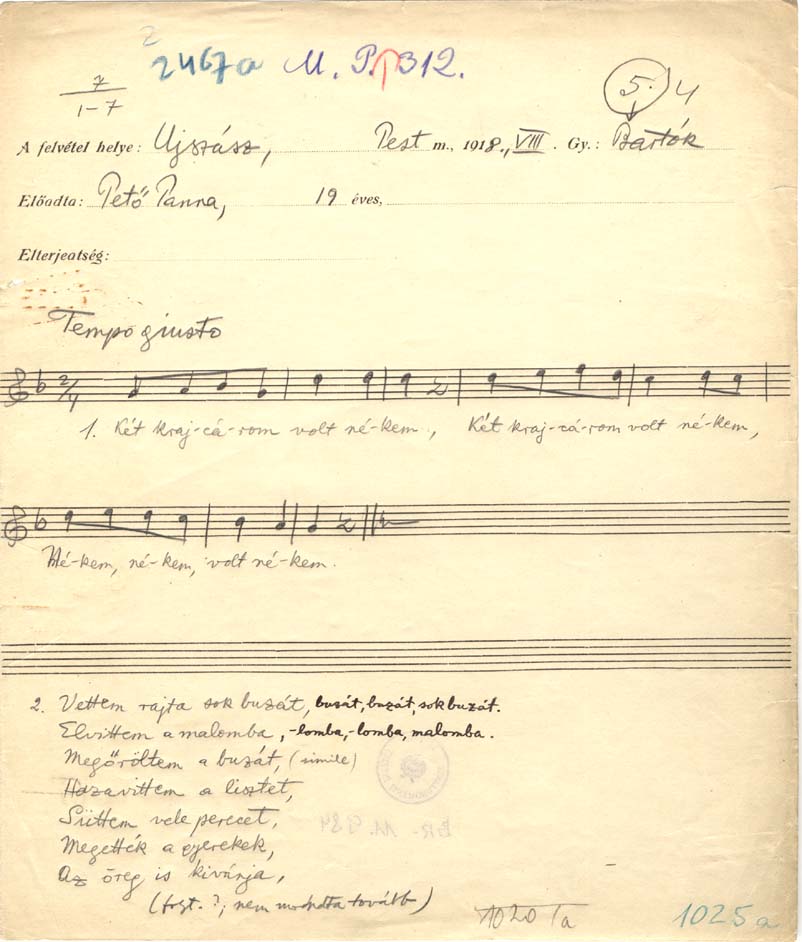 2467a M. P. 1312.
7
1-7
5. 4
A felvétel helye: Ujszász, Pest m., 1918., VIII. Gy.: Bartók
Előadta: Pető Panna, 19 éves,
Elterjeatség:
Tempo giusto
2/4
1. Két kraj-cá-rom volt né-kem, Két kraj-cá-rom volt né-kem,
Né-kem, né-kem, volt né-kem.
2. Vettem rajta sok buzát, buzát, buzát, sok buzát.
Elvittem a malomba, -lomba, -lomba, malomba.
Megőröltem a buzát, (simile)
Hazavittem a lisztet,
Süttem vele perecet,
Megették a gyerekek,
Az öreg is kivánja,
(folyt. ?; nem mondta tovább)
BR. M. 984
1020 Ia
1025a